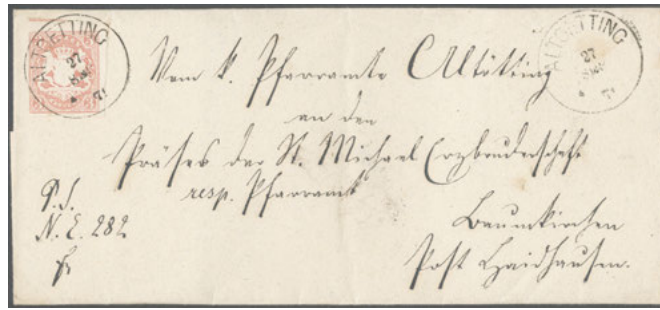 ALTOETTING
27
71
ALTOETTING
27
71
Vom k. Pfarramte Altötting
an den
Präses der St. Michael Erzbruderschaft
resp. Pfarramt
P.S.
N. E. 282
Baumkirchen
Post Haidhausen.